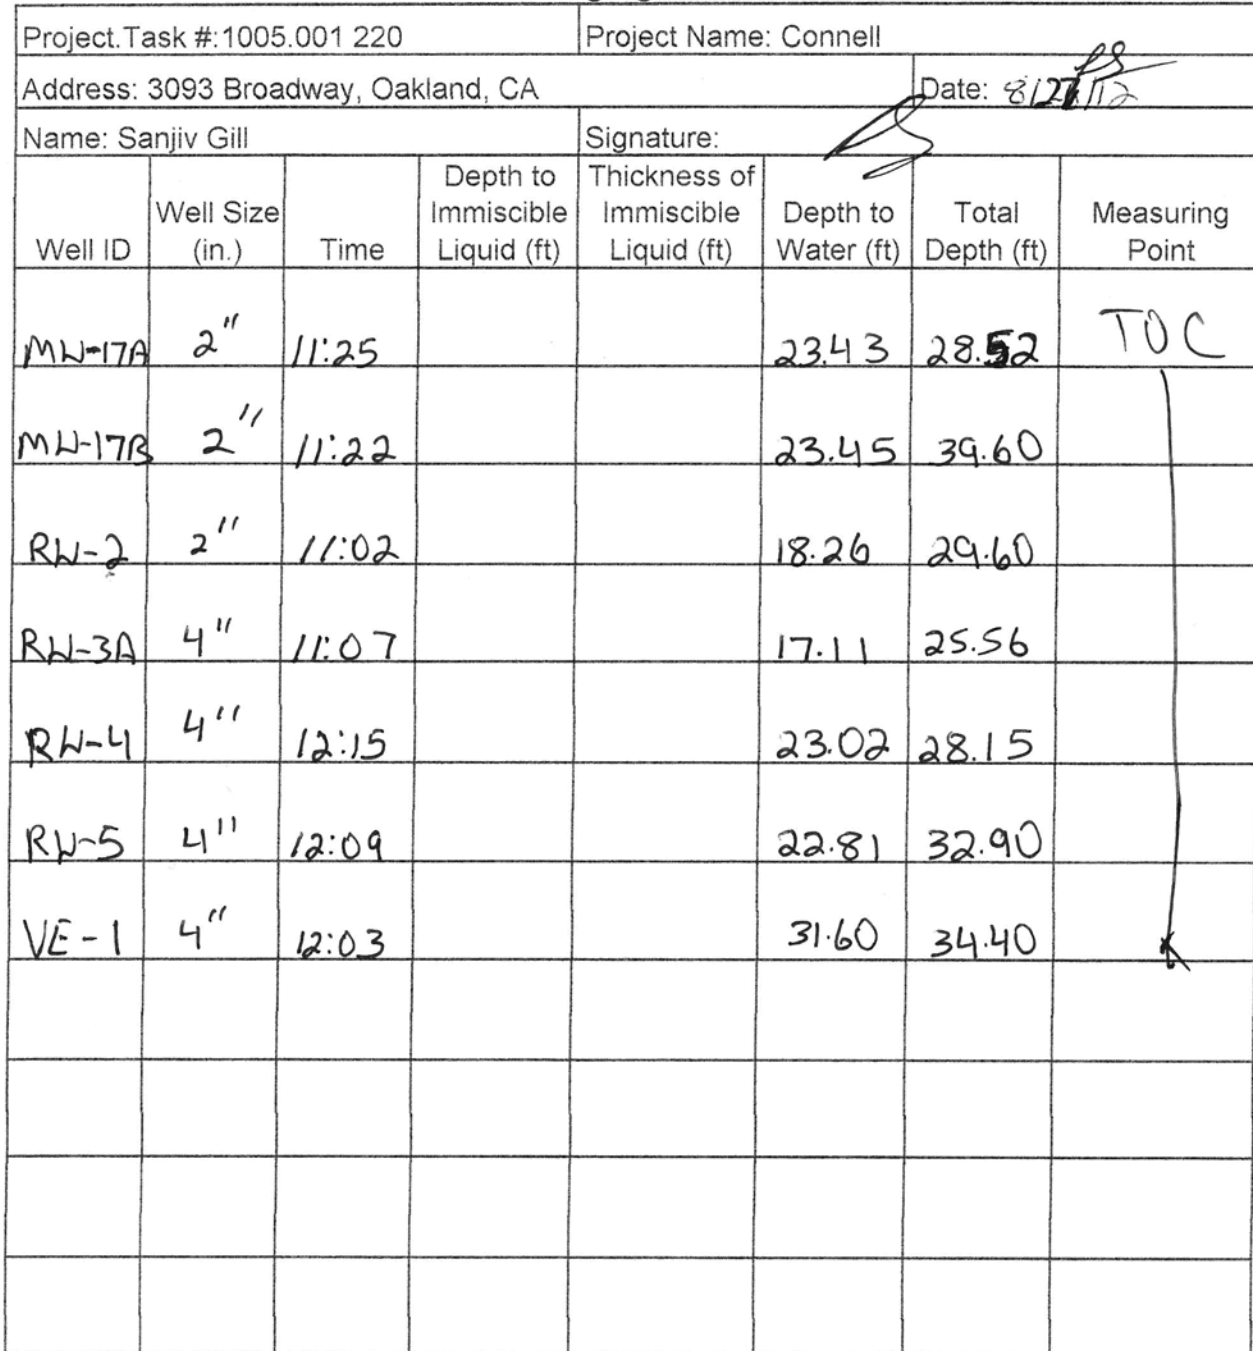 Project.Task #:1005.001 220 Project Name: Connell
Address: 3093 Broadway, Oakland, CA Date: 8/27/12
Name: Sanjiv Gill Signature:
Well ID Well Size (in.) Time Depth to Immiscible Liquid (ft) Thickness of Immiscible Liquid (ft) Depth to Water (ft) Total Depth (ft) Measuring Point
MW-17A 2" 11:25 23.43 28.52 TOC
MW-17B 2" 11:22 23.45 39.60
RW-2 2" 11:02 18.26 29.60
RW-3A 4" 11:07 17.11 25.56
RW-4 4" 12:15 23.02 28.15
RW-5 4" 12:09 22.81 32.90
VE-1 4" 12:03 31.60 34.40